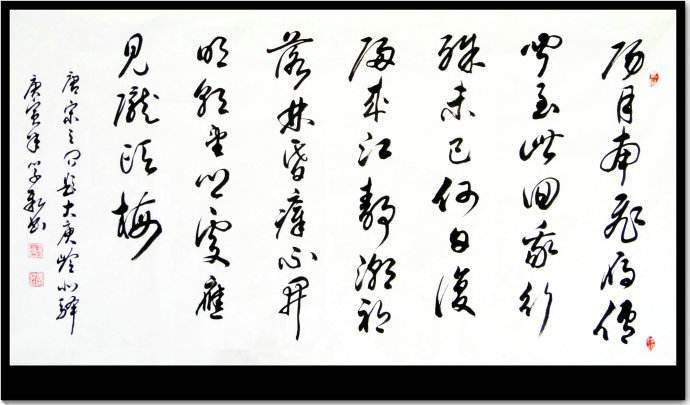 陽月南飛雁傳
聞至此回我行
殊未已何日復
歸来江静潮初
落林昏瘴不開
明朝望鄉處應
見隴頭梅
唐宋之问题大庾岭北驿
庚寅年学书